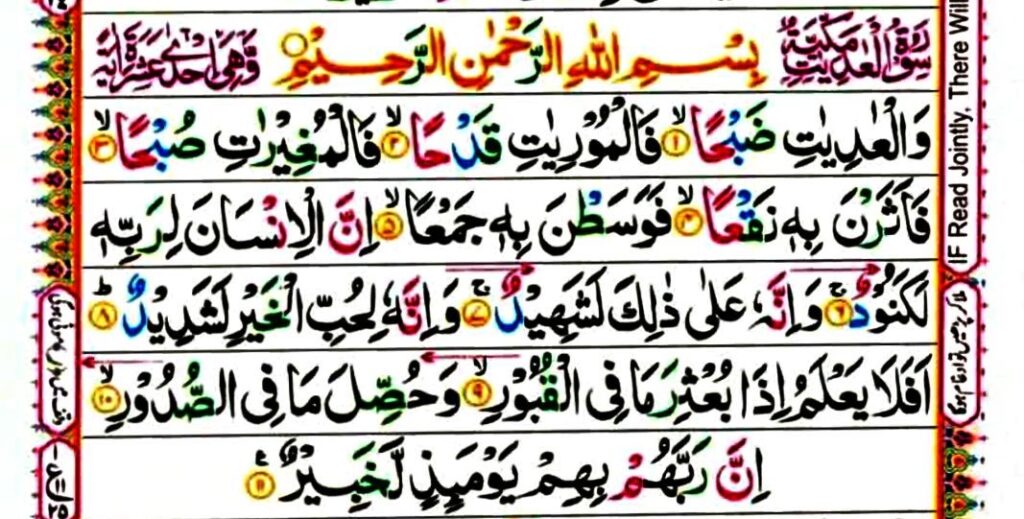 سُوْرَةُ الْعٰدِيٰتِ مَكِّيَّةٌ بِسْمِ اللهِ الرَّحْمٰنِ الرَّحِيْمِ وَّهِيَ اِحْدٰى عَشْرَةَ اٰيَةً
وَالْعٰدِيٰتِ ضَبْحًا ۙ﴿۱﴾ فَالْمُوْرِيٰتِ قَدْحًا ۙ﴿۲﴾ فَالْمُغِيْرٰتِ صُبْحًا ۙ﴿۳﴾
فَاَثَرْنَ بِهٖ نَقْعًا ۙ﴿۴﴾ فَوَسَطْنَ بِهٖ جَمْعًا ۙ﴿۵﴾ اِنَّ الْاِنْسَانَ لِرَبِّهٖ
لَكَنُوْدٌ ۚ﴿۶﴾ وَاِنَّهٗ عَلٰى ذٰلِكَ لَشَهِيْدٌ ۚ﴿۷﴾ وَاِنَّهٗ لِحُبِّ الْخَيْرِ لَشَدِيْدٌ ؕ﴿۸﴾
اَفَلَا يَعْلَمُ اِذَا بُعْثِرَ مَا فِى الْقُبُوْرِ ۙ﴿۹﴾ وَحُصِّلَ مَا فِى الصُّدُوْرِ ۙ﴿۱۰﴾
اِنَّ رَبَّهُمْ بِهِمْ يَوْمَئِذٍ لَّخَبِيْرٌ ﴿۱۱﴾
IF Read Jointly, There Will